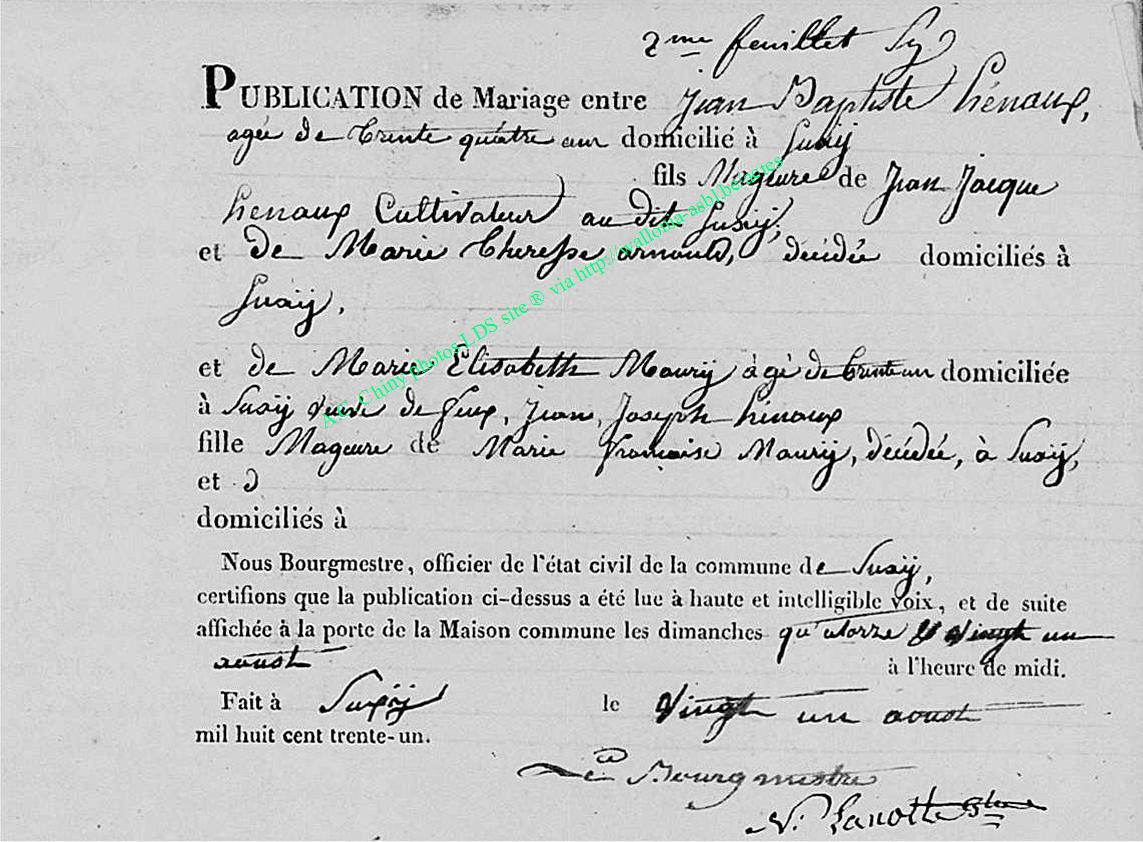 2me feuillet Sy
PUBLICATION de Mariage entre Jean Baptiste hénaux,
agée de trente quatre ans domicilié à Suxÿ
fils Mageure de Jean Jacque
henaux Cultivateur au dit Suxÿ,
et de Marie theresse arnould, décédée domiciliés à
Suxÿ,
et de Marie Elisabeth Maurÿ àgé de trente an domiciliée
à Suxÿ veuve de feux, Jean, Joseph hénaux
fille Mageure de Marie françoise Maurÿ, décédée, à Suxÿ,
et
domiciliés à
Nous Bourgmestre, officier de l'état civil de la commune de Suxÿ,
certifions que la publication ci-dessus a été lue à haute et intelligible voix, et de suite
affichée à la porte de la Maison commune les dimanches qu'atorze & vingt un
aoust à l'heure de midi.
Fait à Suxÿ le vingt un aoust
mil huit cent trente-un.
Le Bourgmestre
N. Lanotte
A.C. Chiny photos LDS site ® via http://wallonia-asbl.be/actes